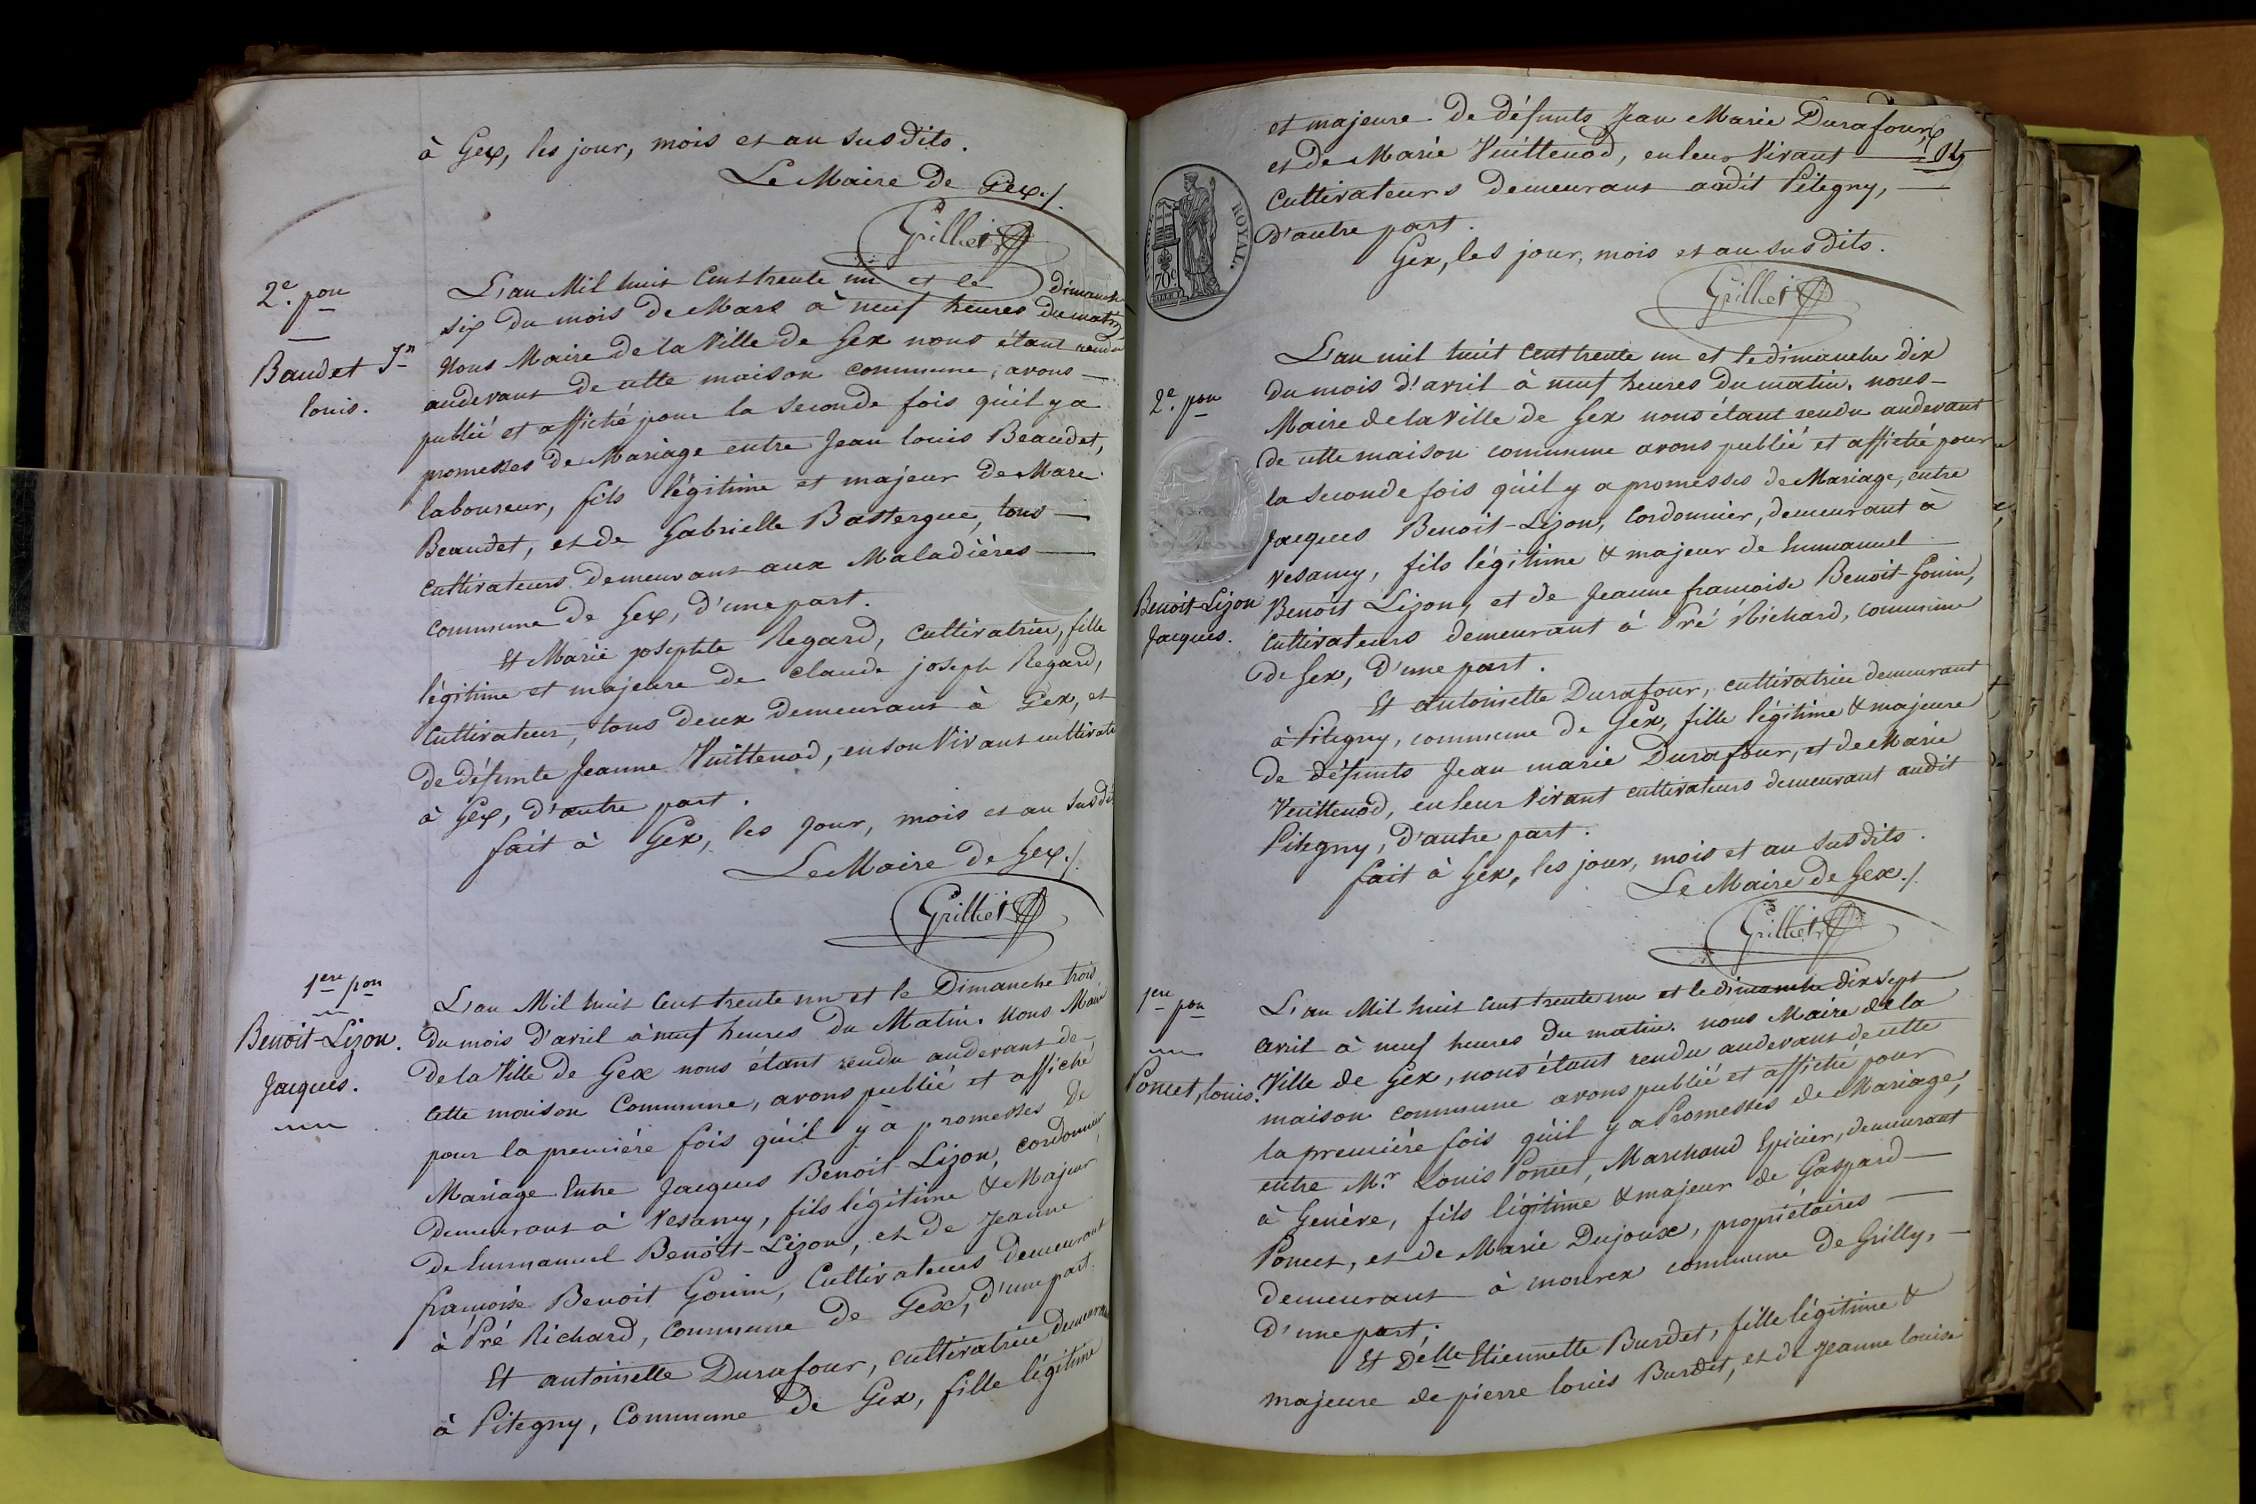 à Gex, les jour, mois et an susdits.
Le Maire de Gex./.
Grillet
2e. pon
Baudet Jn
louis.
L'an Mil huit Cent trente un et le dimanche
six du mois de Mars à neuf heures du matin,
Nous Maire de la Ville de Gex nous étant rendu
audevant de cette maison commune, avons
publié et affiché pour la seconde fois qu'il y a
promesses de Mariage entre Jean louis Beaudet,
laboureur, fils légitime et majeur de Marc
Beaudet, et de Gabrielle Bastergue, tous
cultivateurs demeurant aux Maladières
commune de Gex, d'une part.
Et Marie josephte Regard, cultivatrice, fille
légitime et majeure de claude joseph Regard,
Cultivateur, tous deux demeurant à Gex, et
de défunte Jeanne Vuittenod, en son Vivant cultivat
à Gex, d'autre part.
fait à Gex, les jour, mois et an susdi
Le Maire de Gex./.
Grillet
1ere pon
Benoit-Lizon.
Jacques.
L'an Mil huit Cent trente un et le Dimanche trois
du mois d'avril à neuf heures du Matin. Nous Maire
de la Ville de Gex nous étant rendu audevant de
cette maison Commune, avons publié et affiché
pour la première fois qu'il y a promesses de
Mariage Entre Jacques Benoit-Lizon, cordonnier
demeurant à Vesancy, fils légitime & Majeur
de Emmanuel Benoit-Lizon, et de Jeanne
françoise Benoit Gonin, Cultivateurs demeurant
à Pré Richard, Commune de Gex, d'une part.
Et antoinette Durafour, cultivatrice demeurant
à Pitegny, Commune de Gex, fille légitime
et majeure de défunts Jean Marie Durafour,
et de Marie Vuittenod, en leur Vivant
Cultivateurs demeurant audit Pitegny,
d'autre part.
Gex, les jour, mois et an susdits.
Grillet
ROYAL.
70c
2e. pon
Benoit-Lizon
Jacques.
L'an mil huit cent trente un et le dimanche dix
du mois d'avril à neuf heures du matin. nous
Maire de la Ville de Gex nous étant rendu audevant
de cette maison commune avons publié et affiché pour
la seconde fois qu'il y a promesses de Mariage, entre
Jacques Benoit-Lizon, Cordonnier, demeurant à
Vesancy, fils légitime & majeur de Emmanuel
Benoit Lizon, et de Jeanne françoise Benoit-Gonin,
Cultivateurs demeurant à Pré Richard, commune
de Gex, d'une part.
Et Antoinette Durafour, cultivatrice demeurant
à Pitegny, commune de Gex, fille légitime & majeure
de défunts Jean marie Durafour, et de Marie
Vuittenod, en leur Vivant cultivateurs demeurant audit
Pitegny, d'autre part.
fait à Gex, les jour, mois et an susdits.
Le Maire de Gex./.
Grillet
1ere pon
Poncet, louis.
L'an Mil huit cent trente un et le dimanche dix sept
avril à neuf heures du matin. nous Maire de la
Ville de Gex, nous étant rendu audevant de cette
maison commune avons publié et affiché pour
la première fois qu'il y a Promesses de Mariage,
entre Mr. Louis Poncet, Marchand Epicier, demeurant
à Genève, fils légitime & majeur de Gaspard
Poncet, et de Marie Dujoux, propriétaires
demeurant à mourex commune de Grilly,
d'une part;
Et Delle Etiennette Burdet, fille légitime &
majeure de pierre louis Burdet, et de Jeanne louise